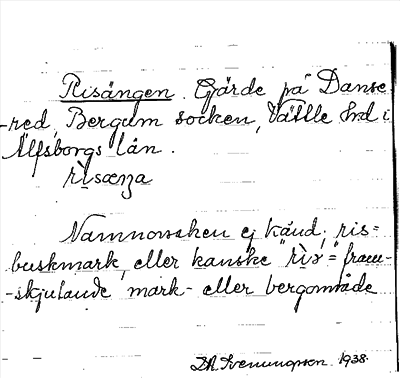 Risängen. Gärde på Danse
-red, Bergum socken, Vättle hd i
Älfsborgs län.
rìsæŋa
Namnorsaken ej känd; ris=
buskmark eller kanske "rìs" = fram-
-skjutande mark- eller bergområde
1938.